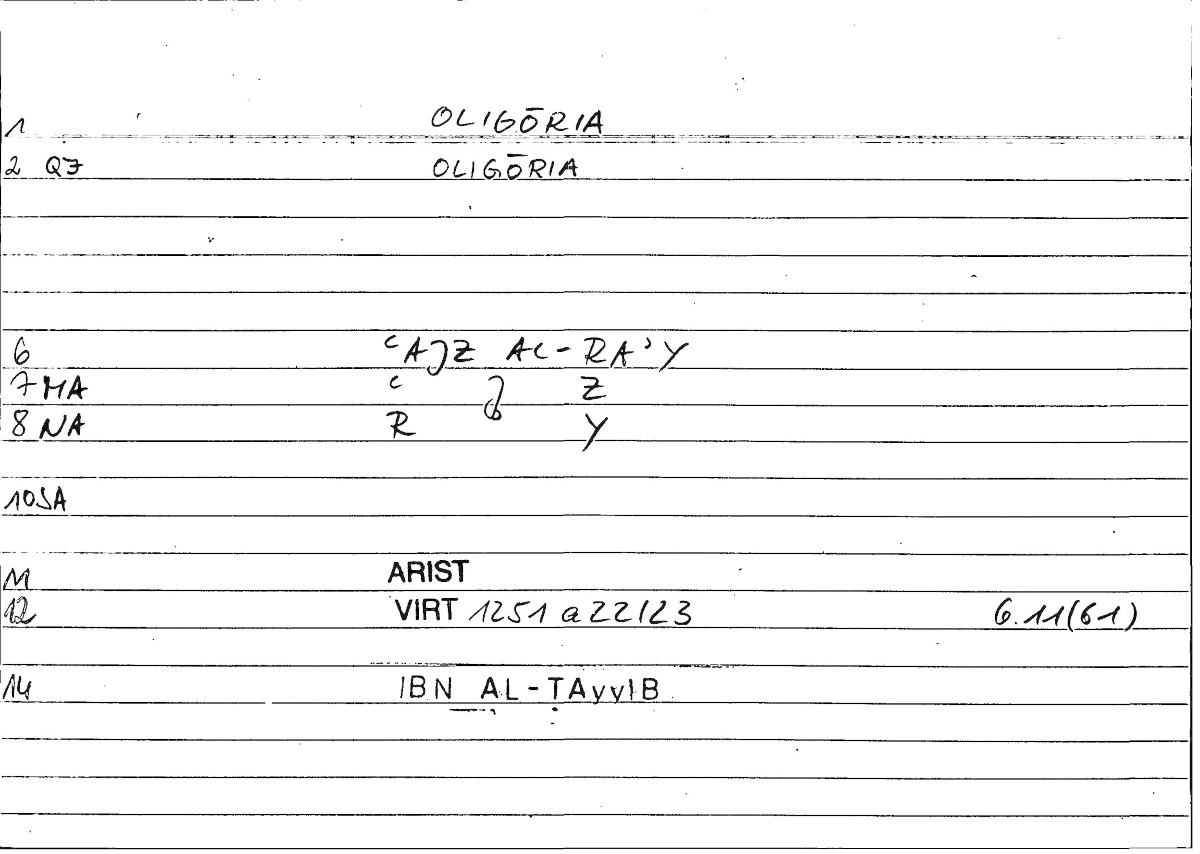 1 OLIGŌRIA
2 QF OLIGŌRIA
6 ʿAJZ AL-RAʾY
7 MA ʿ J Z
8 NA R Y
10 SA
11 ARIST
12 VIRT 1251 a 22/23 6.11(61)
14 IBN AL-ṬAyyIB